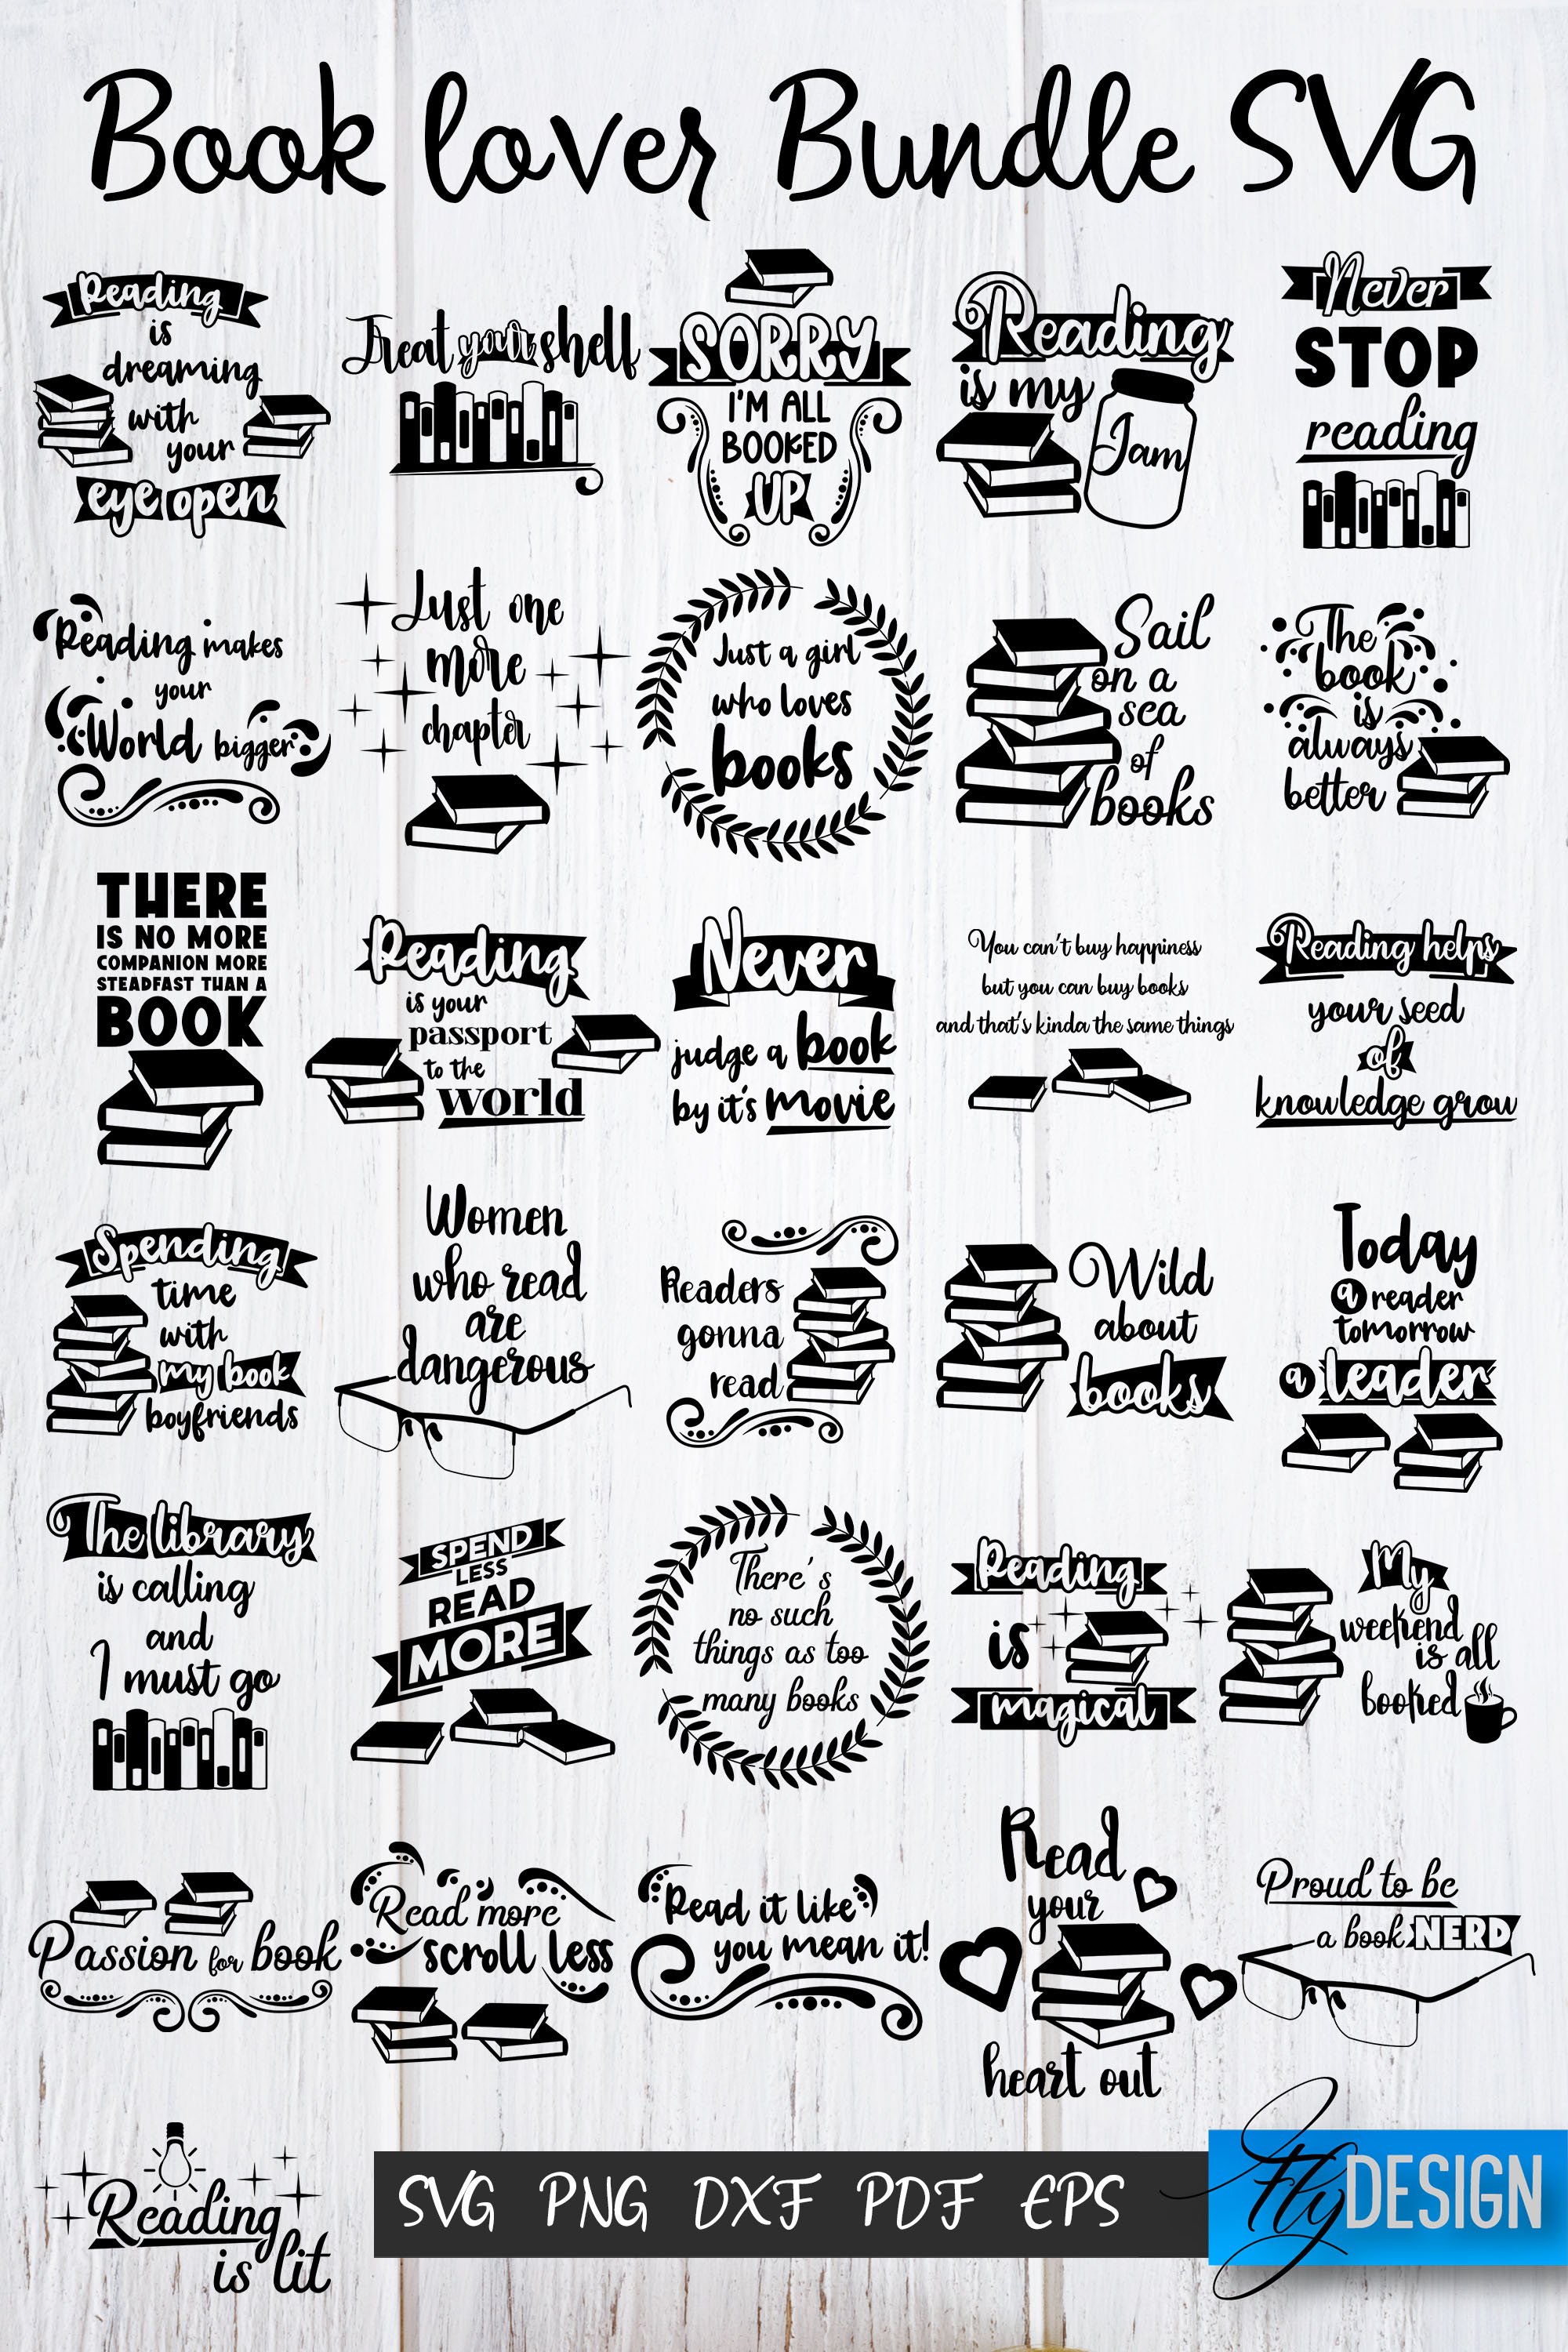 Book lover Bundle SVG
Reading
is
dreaming
with
your
eye open
Treat your shelf
SORRY
I'M ALL
BOOKED
UP
Reading
is my
Jam
Never
STOP
reading
Reading makes
your
World bigger
Just one
more
chapter
Just a girl
who loves
books
Sail
on a
sea
of
books
The
book
is
always
better
THERE
IS NO MORE
COMPANION MORE
STEADFAST THAN A
BOOK
Reading
is your
passport
to the
world
Never
judge a book
by it's movie
You can't buy happiness
but you can buy books
and that's kinda the same things
Reading helps
your seed
of
knowledge grow
Spending
time
with
my book
boyfriends
Women
who read
are
dangerous
Readers
gonna
read
Wild
about
books
Today
a reader
tomorrow
a leader
The library
is calling
and
I must go
SPEND
LESS
READ
MORE
There's
no such
things as too
many books
Reading
is
magical
My
weekend
is all
booked
Passion for book
Read more
scroll less
Read it like
you mean it!
Read
your
heart out
Proud to be
a book NERD
Reading
is lit
SVG PNG DXF PDF EPS
FlyDESIGN